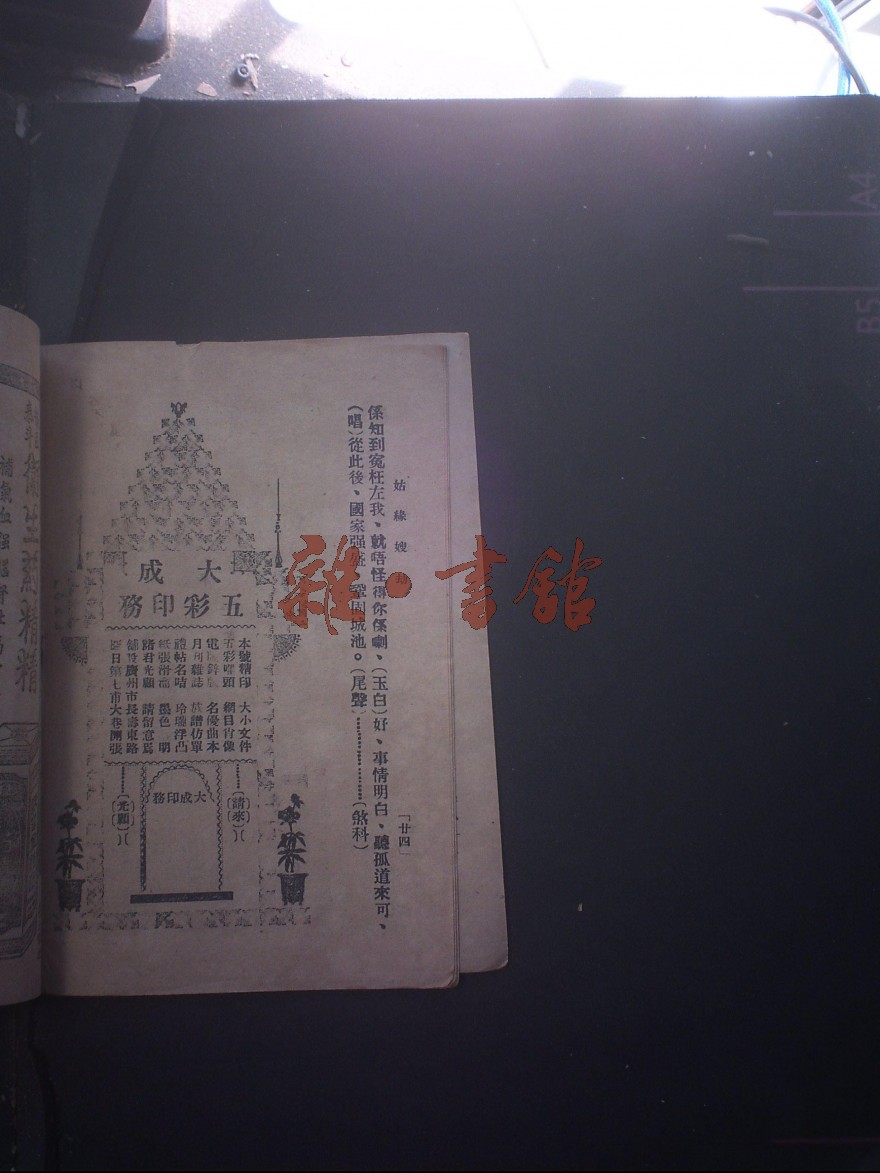 姑緣嫂劫
「廿四」
係知到寃枉左我、就唔怪得你係喇、(玉白)好、事情明白、聽孤道來可、
(唱)從此後、國家强盛 鞏固城池。(尾聲)…………………(煞科)
大成
五彩印務
本號精印 大小文件
五彩 頭 網目肖像
電 名優曲本
月刋雜誌 族譜仿單
禮帖名咭 玲瓏浮凸
紙張滑 墨色 明
諸君光顧 請留意焉
舖設廣州市長壽東路
日第七市大巷開張
……(請來)
大成印務
……(光顧)
雜·書館
A4
B5